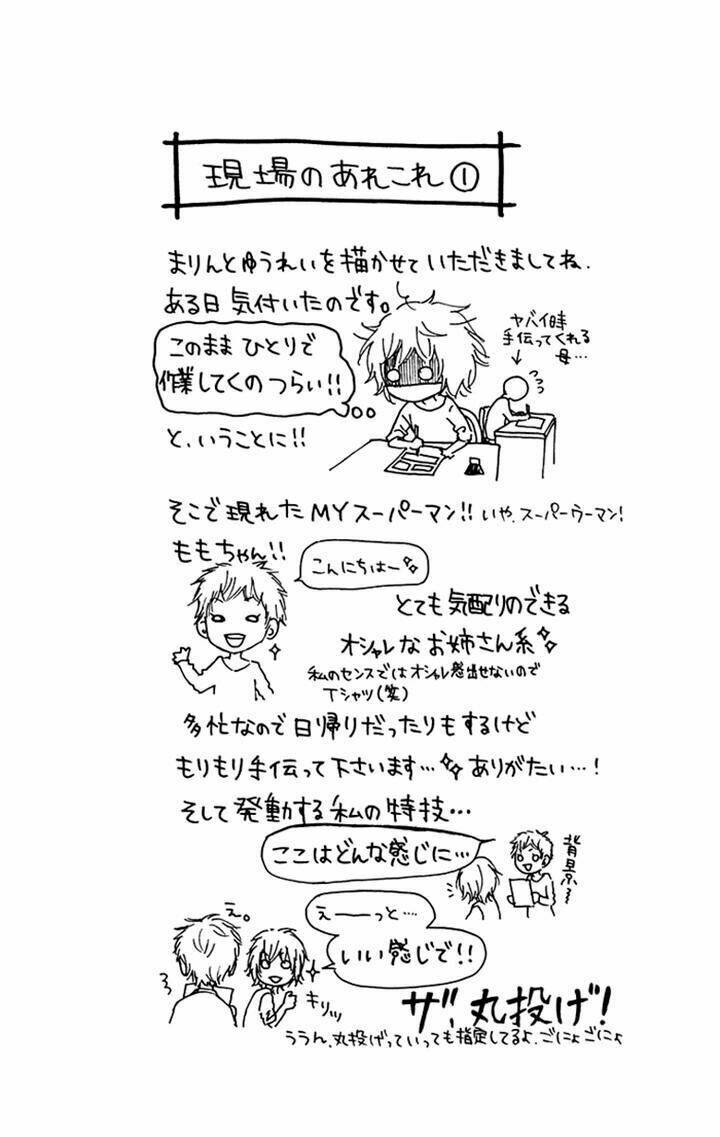 現場のあれこれ①
まりんとゆうれいを描かせていただきましてね、
ある日気付いたのです。
ヤバイ時
手伝ってくれる
母…
このままひとりで
作業してくのつらい!!
と、いうことに!!
そこで現れたMYスーパーマン!!いや、スーパーウーマン!
ももちゃん!!
こんにちはー
とても気配りのできる
オシャレなお姉さん系
私のセンスではオシャレ感出せないので
Tシャツ(笑)
多忙なので日帰りだったりもするけど
もりもり手伝って下さいます…ありがたい…!
そして発動する私の特技…
ここはどんな感じに…
背景
えーーっと…
え。
いい感じで!!
キリッ
ザ、丸投げ!
ううん、丸投げっていっても指定してるよ、ごにょごにょ